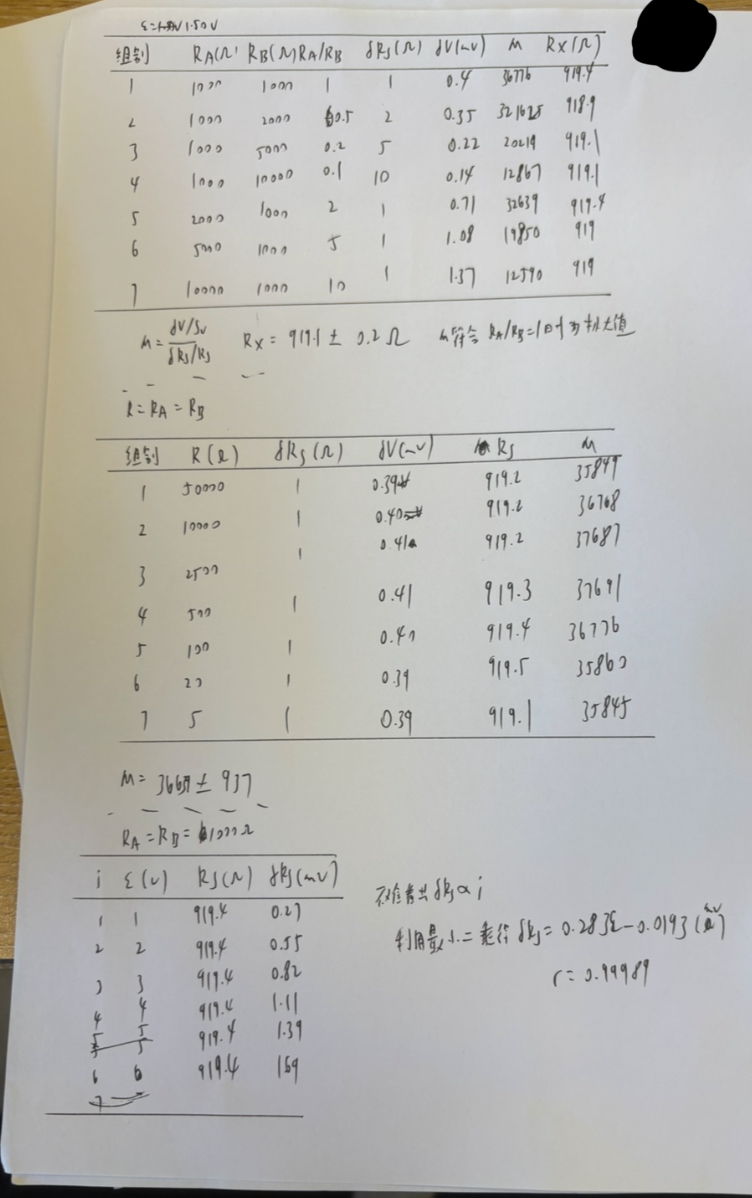 1.50V
组别 RA(Ω) RB(Ω) RA/RB δRs(Ω) δV(mv) M Rx(Ω)
1 1000 1000 1 1 0.4 36776 919.4
2 1000 2000 0.5 2 0.35 321625 918.9
3 1000 5000 0.2 5 0.22 20219 919.1
4 1000 10000 0.1 10 0.14 12867 919.1
5 2000 1000 2 1 0.71 32639 919.4
6 5000 1000 5 1 1.08 19850 919
7 10000 1000 10 1 1.37 12590 919
M = (δV/Sv)/(δRs/Rs) Rx = 919.1 ± 0.2Ω M符合 RA/RB=1时为极大值
R = RA = RB
组别 R(Ω) δRs(Ω) δV(mv) Rs M
1 50000 1 0.39 919.2 35849
2 10000 1 0.40 919.2 36768
3 2500 1 0.41 919.2 37687
4 500 1 0.41 919.3 37691
5 100 1 0.40 919.4 36776
6 20 1 0.39 919.5 35860
7 5 1 0.39 919.1 35845
M = ± 937
RA = RB = 1000Ω
i ε(v) Rs(Ω) δRs(mv)
1 1 919.4 0.27
2 2 919.4 0.55
3 3 919.4 0.82
4 4 919.4 1.11
5 5 919.4 1.39
6 6 919.4 169
7
看出 δRs∝i
利用最小二乘得 δRs = 0.283ε - 0.0193 (mv)
r = 0.99989